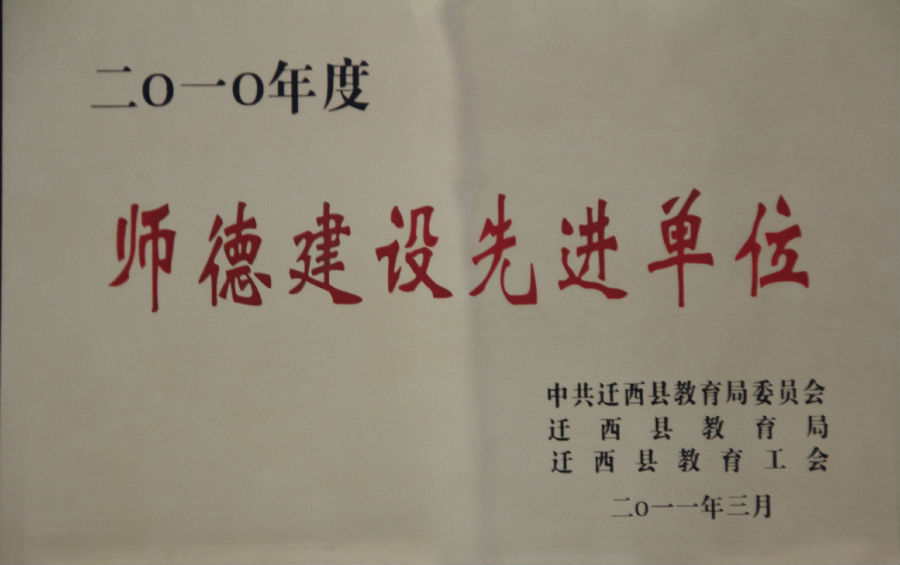 二〇一〇年度
师德建设先进单位
中共迁西县教育局委员会
迁西县教育局
迁西县教育工会
二〇一一年三月